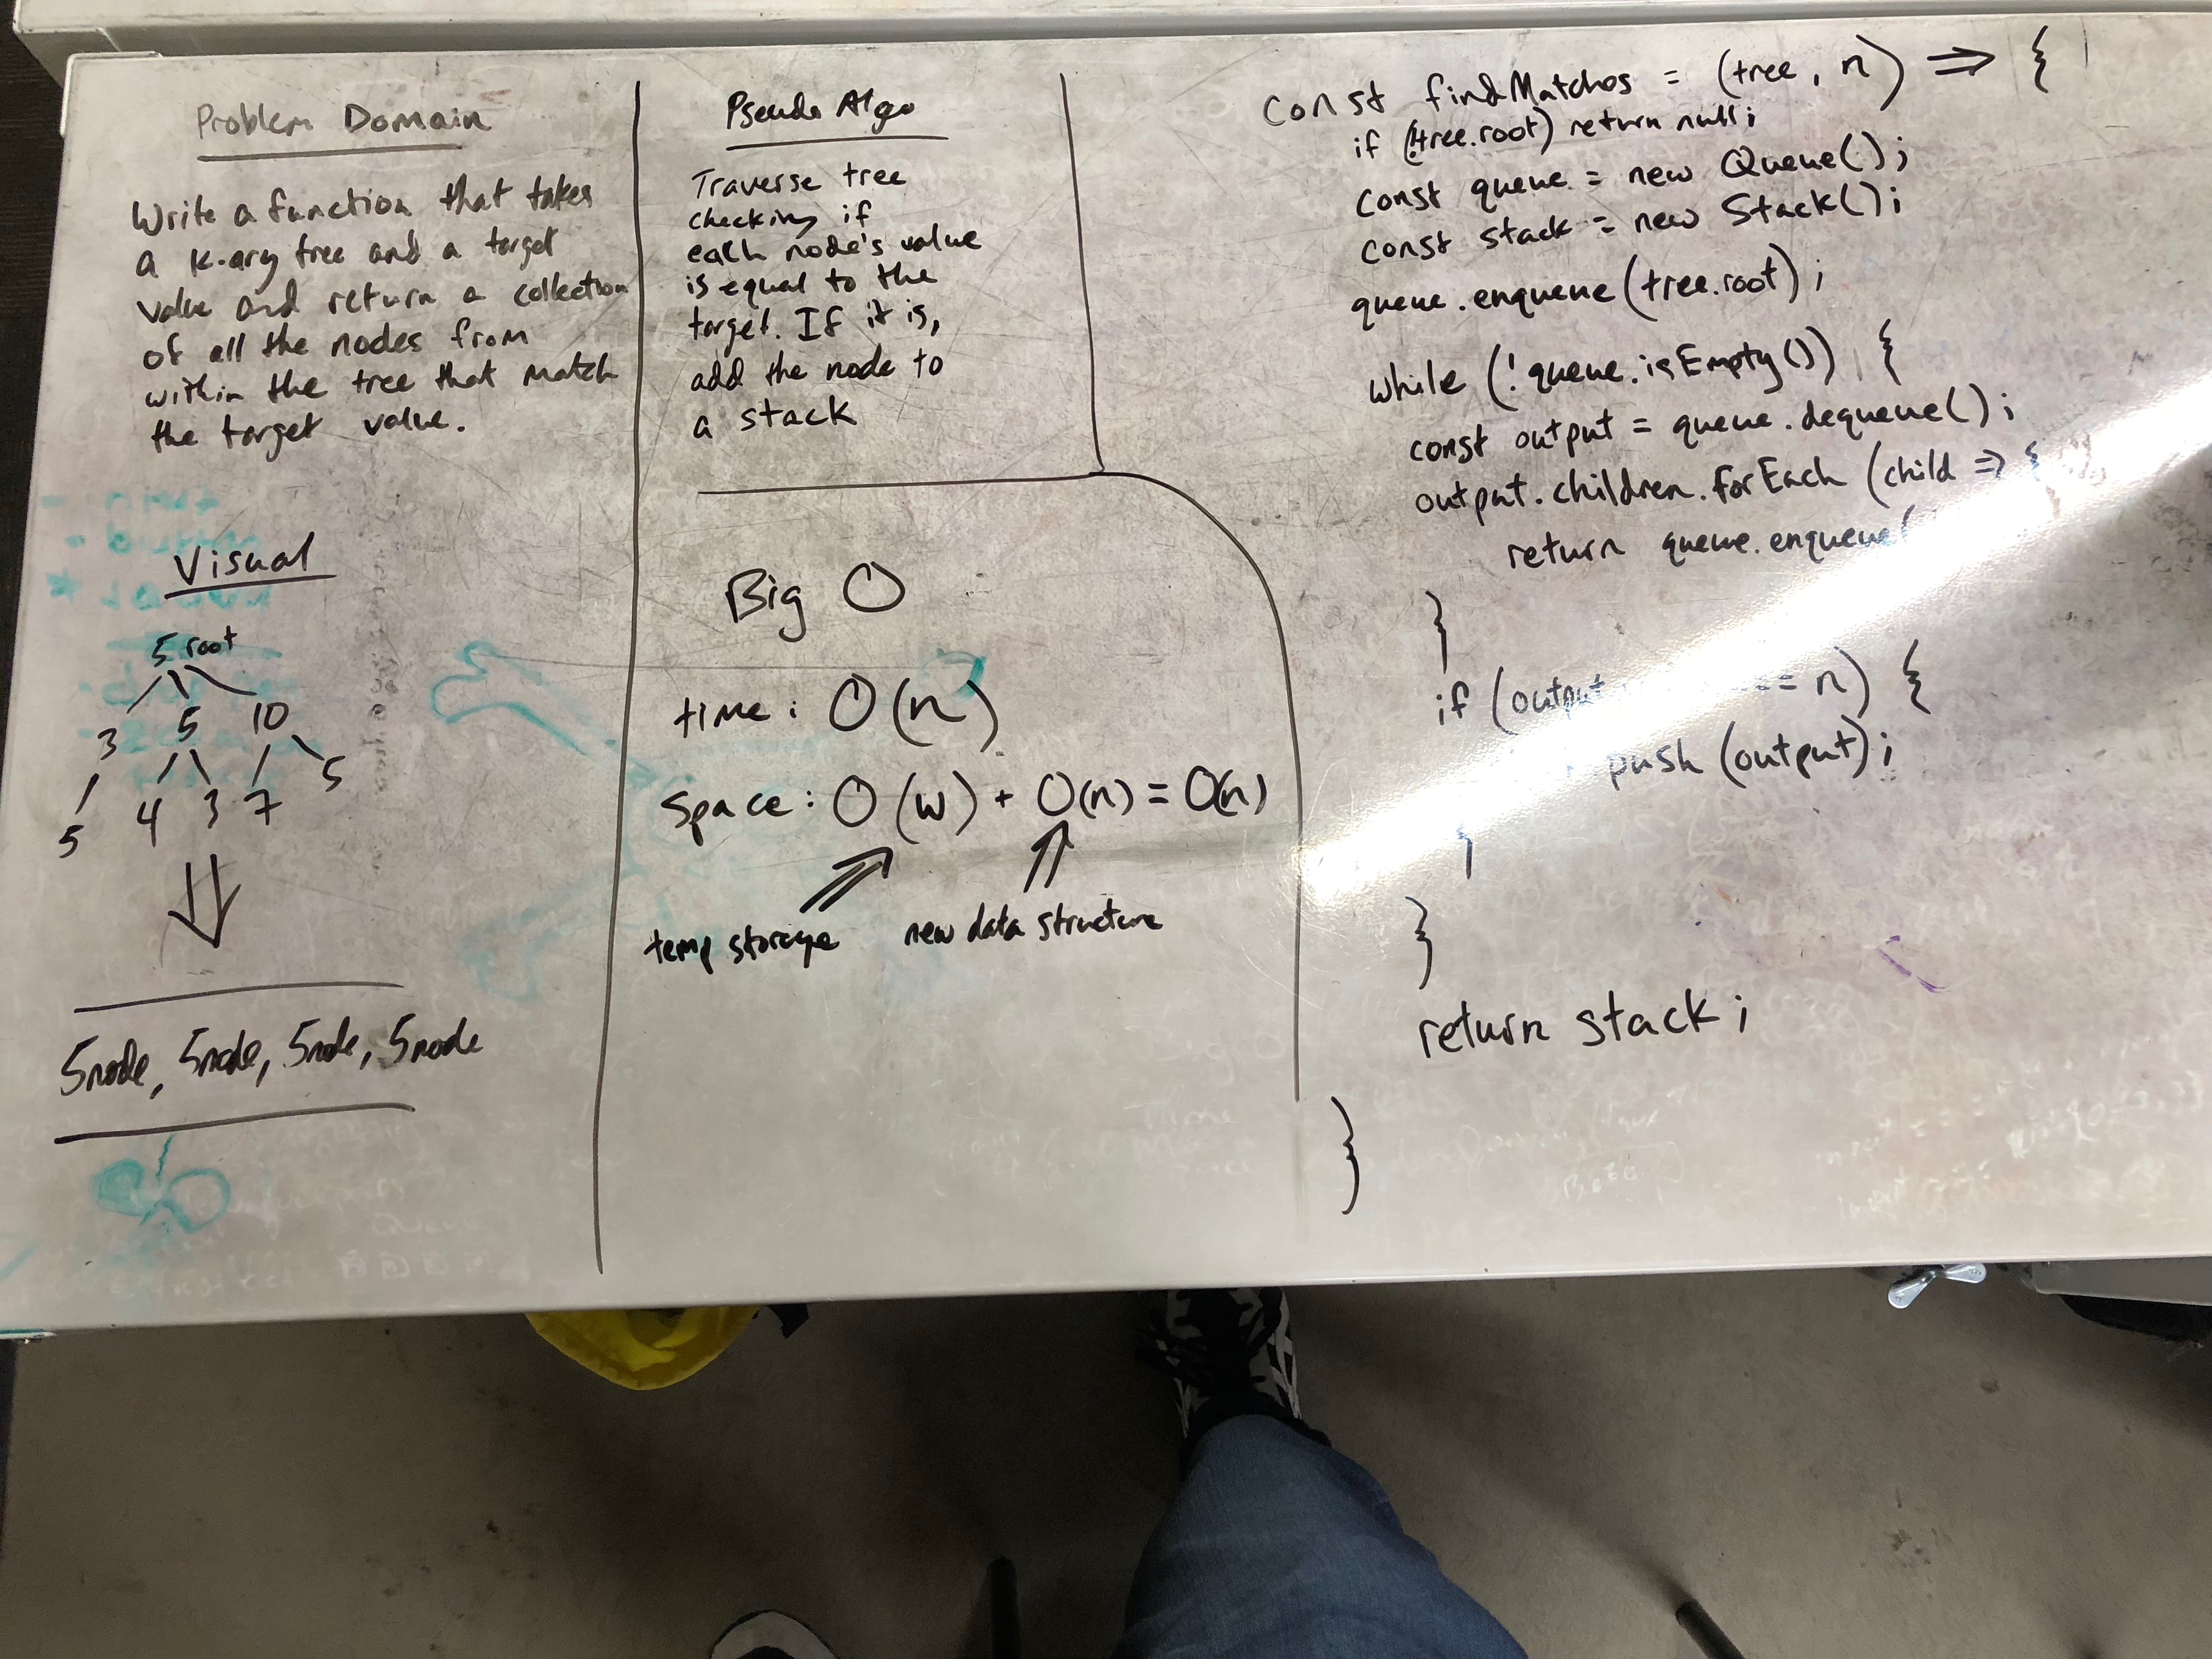 Problem Domain
Write a function that takes
a k-ary tree and a target
value and return a collection
of all the nodes from
within the tree that match
the target value.
Visual
5 root
3 5 10
5 4 3 7 5
5node, 5node, 5node, 5node
Pseudo Algo
Traverse tree
checking if
each node's value
is equal to the
target. If it is,
add the node to
a stack
Big O
time: O(n)
Space: O(w) + O(n) = O(n)
temp storage new data structure
const findMatches = (tree, n) => {
if (!tree.root) return null;
const queue = new Queue();
const stack = new Stack();
queue.enqueue(tree.root);
while (!queue.isEmpty()) {
const output = queue.dequeue();
output.children.forEach (child => {
return queue.enqueue(
}
if (output == n) {
push (output);
}
}
return stack;
}